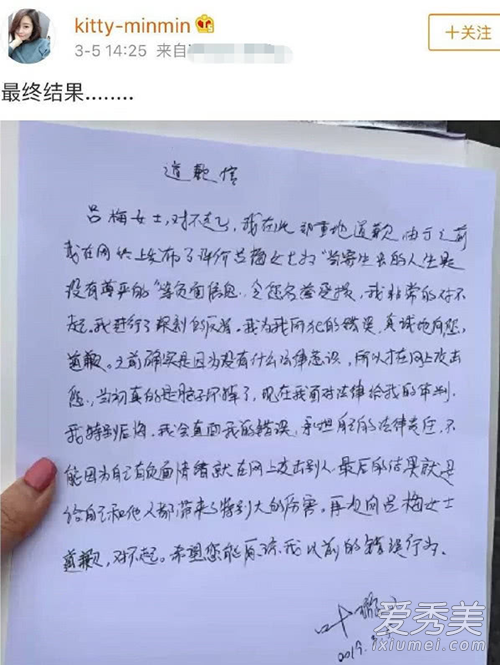 kitty-minmin
+关注
3-5 14:25 来自
最终结果........
道歉信
吕梅女士,对不起,我在此郑重地道歉,由于之前
我在网络上发布了评价吕梅女士为"当寄生虫的人生是
没有尊严的"等负面信息,令您名誉受损,我非常的对不
起,我进行了深刻的反省。我为我所犯的错误,真诚地向您
道歉。之前确实是因为没有什么法律意识,所以才在网上攻击
您,当初真的是脑子坏掉了,现在我面对法律给我的审判,
我特别后悔,我会直面我的错误,承担自己的法律责任,不
能因为自己有负面情绪就在网上攻击别人,最后的结果就是
给自己和他人都带来了特别大的伤害。再次向吕梅女士
道歉,对不起。希望您能原谅我以前的错误行为。
叶
2019.
爱秀美
ixiumei.com